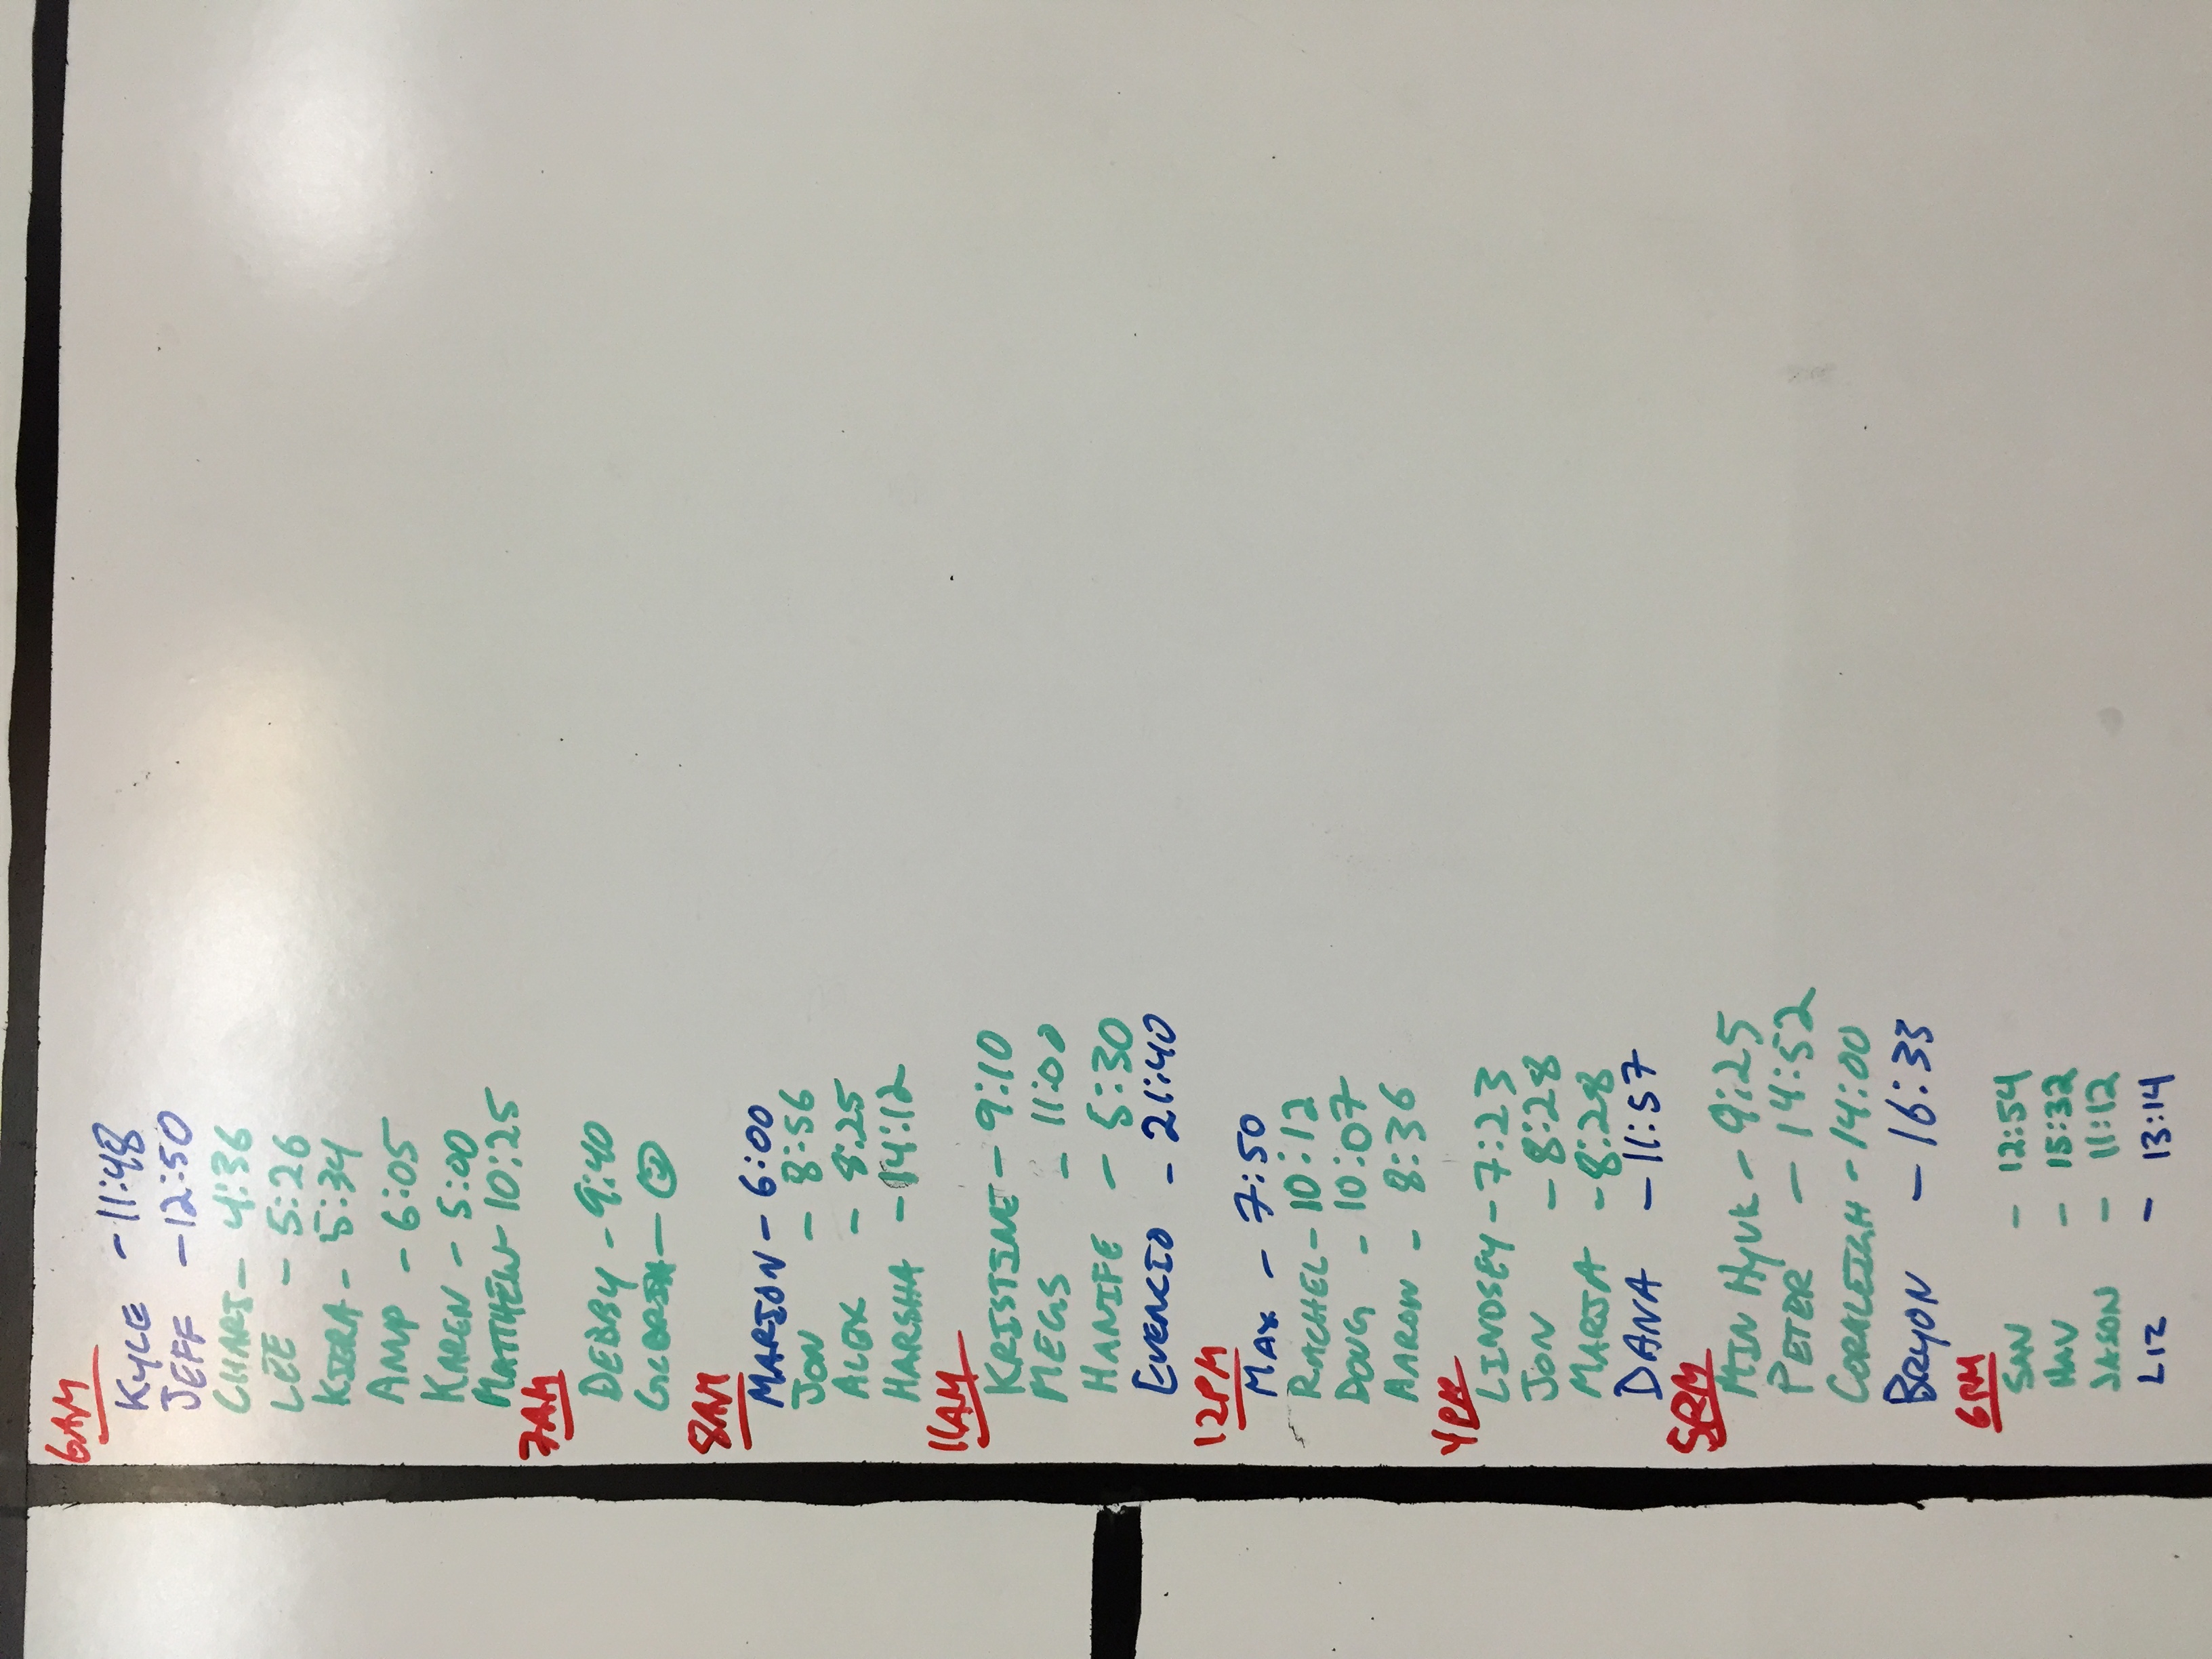 6AM
KYLE - 11:48
JEFF - 12:50
CHARI - 4:36
LEE - 5:26
KIERA - 5:34
AMP - 6:05
KAREN - 5:00
MATTHEW - 10:25
7AM
DEBBY - 9:40
GLORIA -
8AM
MARION - 6:00
JON - 8:56
ALEX - 8:25
HARSHA - 14:12
11AM
KRISTINE - 9:10
MEGS - 11:00
HANIFE - 5:30
EVENCIO - 21:40
12PM
MAX - 7:50
RACHEL - 10:12
DOUG - 10:07
AARON - 8:36
4PM
LINDSEY - 7:23
JON - 8:28
MARIA - 8:28
DANA - 11:57
5PM
MIN HYUK - 9:25
PETER - 14:52
CORALEIGH - 14:00
BRYON - 16:33
6PM
SAN - 12:54
- 15:32
JASON - 11:12
LIZ - 13:14